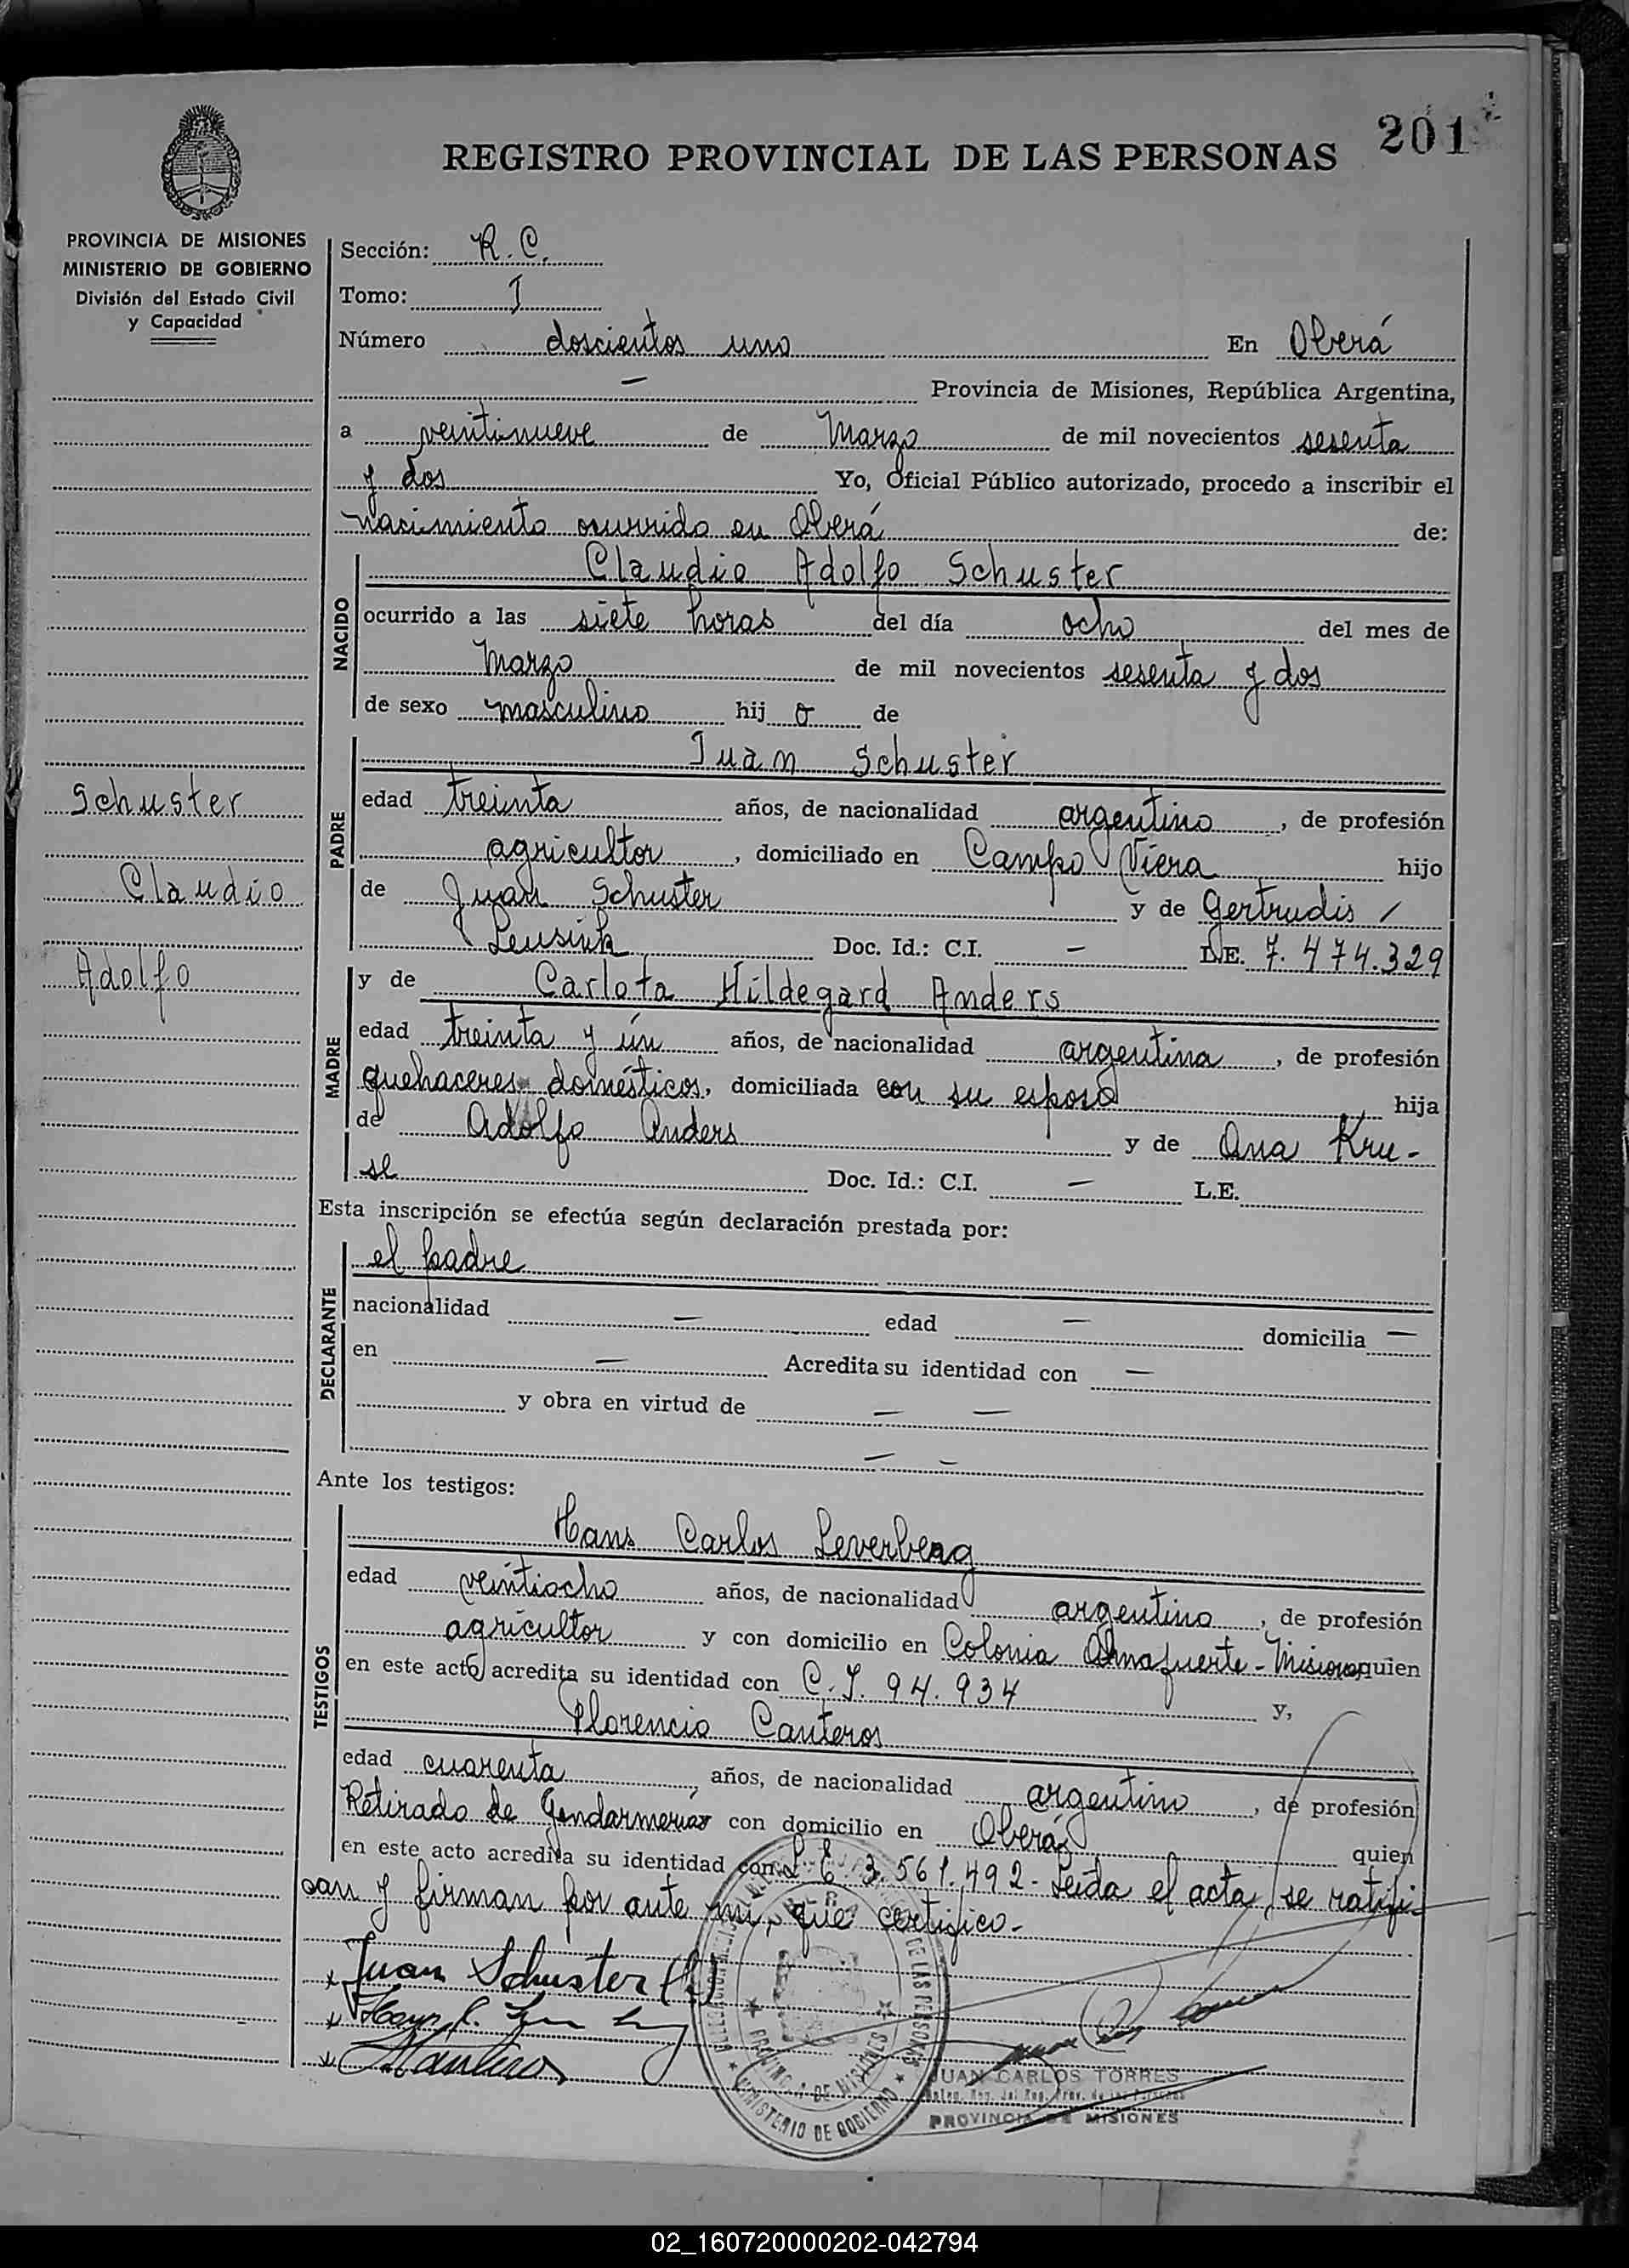 201
REGISTRO PROVINCIAL DE LAS PERSONAS
PROVINCIA DE MISIONES
MINISTERIO DE GOBIERNO
División del Estado Civil
y Capacidad
Sección: R. C.
Tomo: I
Número doscientos uno En Oberá
— Provincia de Misiones, República Argentina,
a veintinueve de Marzo de mil novecientos sesenta
y dos Yo, Oficial Público autorizado, procedo a inscribir el
nacimiento ocurrido en Oberá de:
NACIDO
Claudio Adolfo Schuster
ocurrido a las siete horas del día ocho del mes de
Marzo de mil novecientos sesenta y dos
de sexo masculino hij o de
PADRE
Juan Schuster
Schuster
Claudio
Adolfo
edad treinta años, de nacionalidad argentino, de profesión
agricultor, domiciliado en Campo Viera hijo
de Juan Schuster y de Gertrudis /
Leusink Doc. Id.: C.I. — L.E. 7.474.329
MADRE
y de Carlota Hildegard Anders
edad treinta y ún años, de nacionalidad argentina, de profesión
quehaceres domésticos, domiciliada con su esposo hija
de Adolfo Anders y de Ana Kru-
se Doc. Id.: C.I. — L.E.
Esta inscripción se efectúa según declaración prestada por:
DECLARANTE
el padre
nacionalidad — edad — domicilia —
en — Acredita su identidad con —
y obra en virtud de — —
— —
Ante los testigos:
TESTIGOS
Hans Carlos Leverberg
edad veintiocho años, de nacionalidad argentino, de profesión
agricultor y con domicilio en Colonia Almafuerte - Misiones quien
en este acto acredita su identidad con C. I. 94.934 y,
Florencio Canteros
edad cuarenta, años, de nacionalidad argentino, de profesión
Retirado de Gendarmería con domicilio en Oberá quien
en este acto acredita su identidad con L. E. 3.561.492 - Leída el acta, se ratifi-
can y firman por ante mi, que certifico.-
x Juan Schuster (h)
x
x Canteros
DE LAS PERSONAS
PROVINCIA DE MISIONES
MINISTERIO DE GOBIERNO
JUAN CARLOS TORRES
PROVINCIA DE MISIONES
02_160720000202-042794